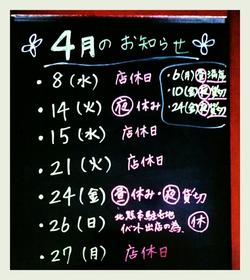 4月のお知らせ
・8(水) 店休日
・14(火) 夜 休み
・15(水) 店休日
・21(火) 店休日
・24(金) 昼 休み・夜 貸切
・26(日) 北熊本駐屯地
イベント出店の為、休
・27(月) 店休日
・6(月) 昼 満席
・10(金) 夜 貸切
・24(金) 夜 貸切